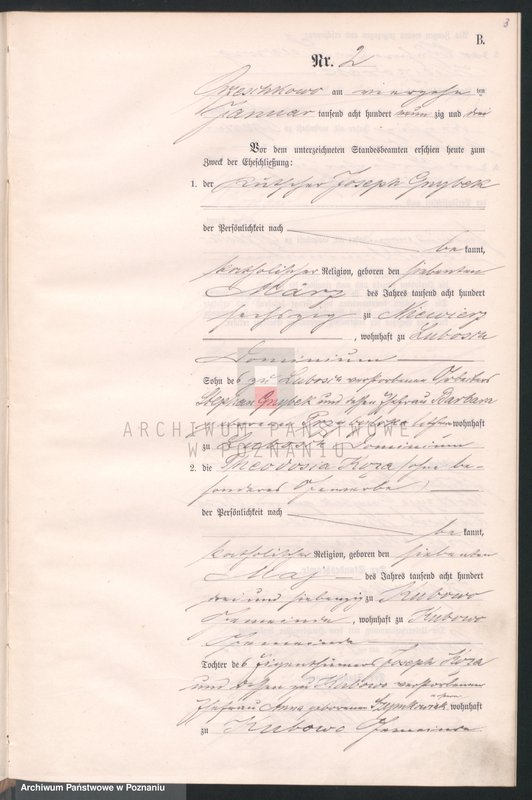 3
B.
Nr. 2
am vierzehn ten
Januar tausend acht hundert neun zig und drei
Vor dem unterzeichneten Standesbeamten erschien heute zum
Zweck der Eheschließung:
1. der Kutscher Joseph Gnybek
der Persönlichkeit nach
be kannt,
katholischer Religion, geboren den siebenten
März des Jahres tausend acht hundert
sechszig zu Niewierz
, wohnhaft zu Lubosin
Dominium
Sohn des zu Lubosin verstorbenen Arbeiters
Stephan Gnybek und dessen Ehefrau Barbara
geborene wohnhaft
zu Dominium
2. die Theodosia Kora ohne be-
sonderes Gewerbe
der Persönlichkeit nach
be kannt,
katholischer Religion, geboren den siebenten
Mai des Jahres tausend acht hundert
drei und siebenzig zu Kubowo
Gemeinde , wohnhaft zu Kubowo
Gemeinde
Tochter des Eigenthümers Joseph Kora
und dessen zu Kubowo verstorbenen
Ehefrau Anna geborenen Szymkowiak wohnhaft
zu Kubowo Gemeinde
ARCHIWUM PAŃSTWOWE
W POZNANIU
Archiwum Państwowe w Poznaniu